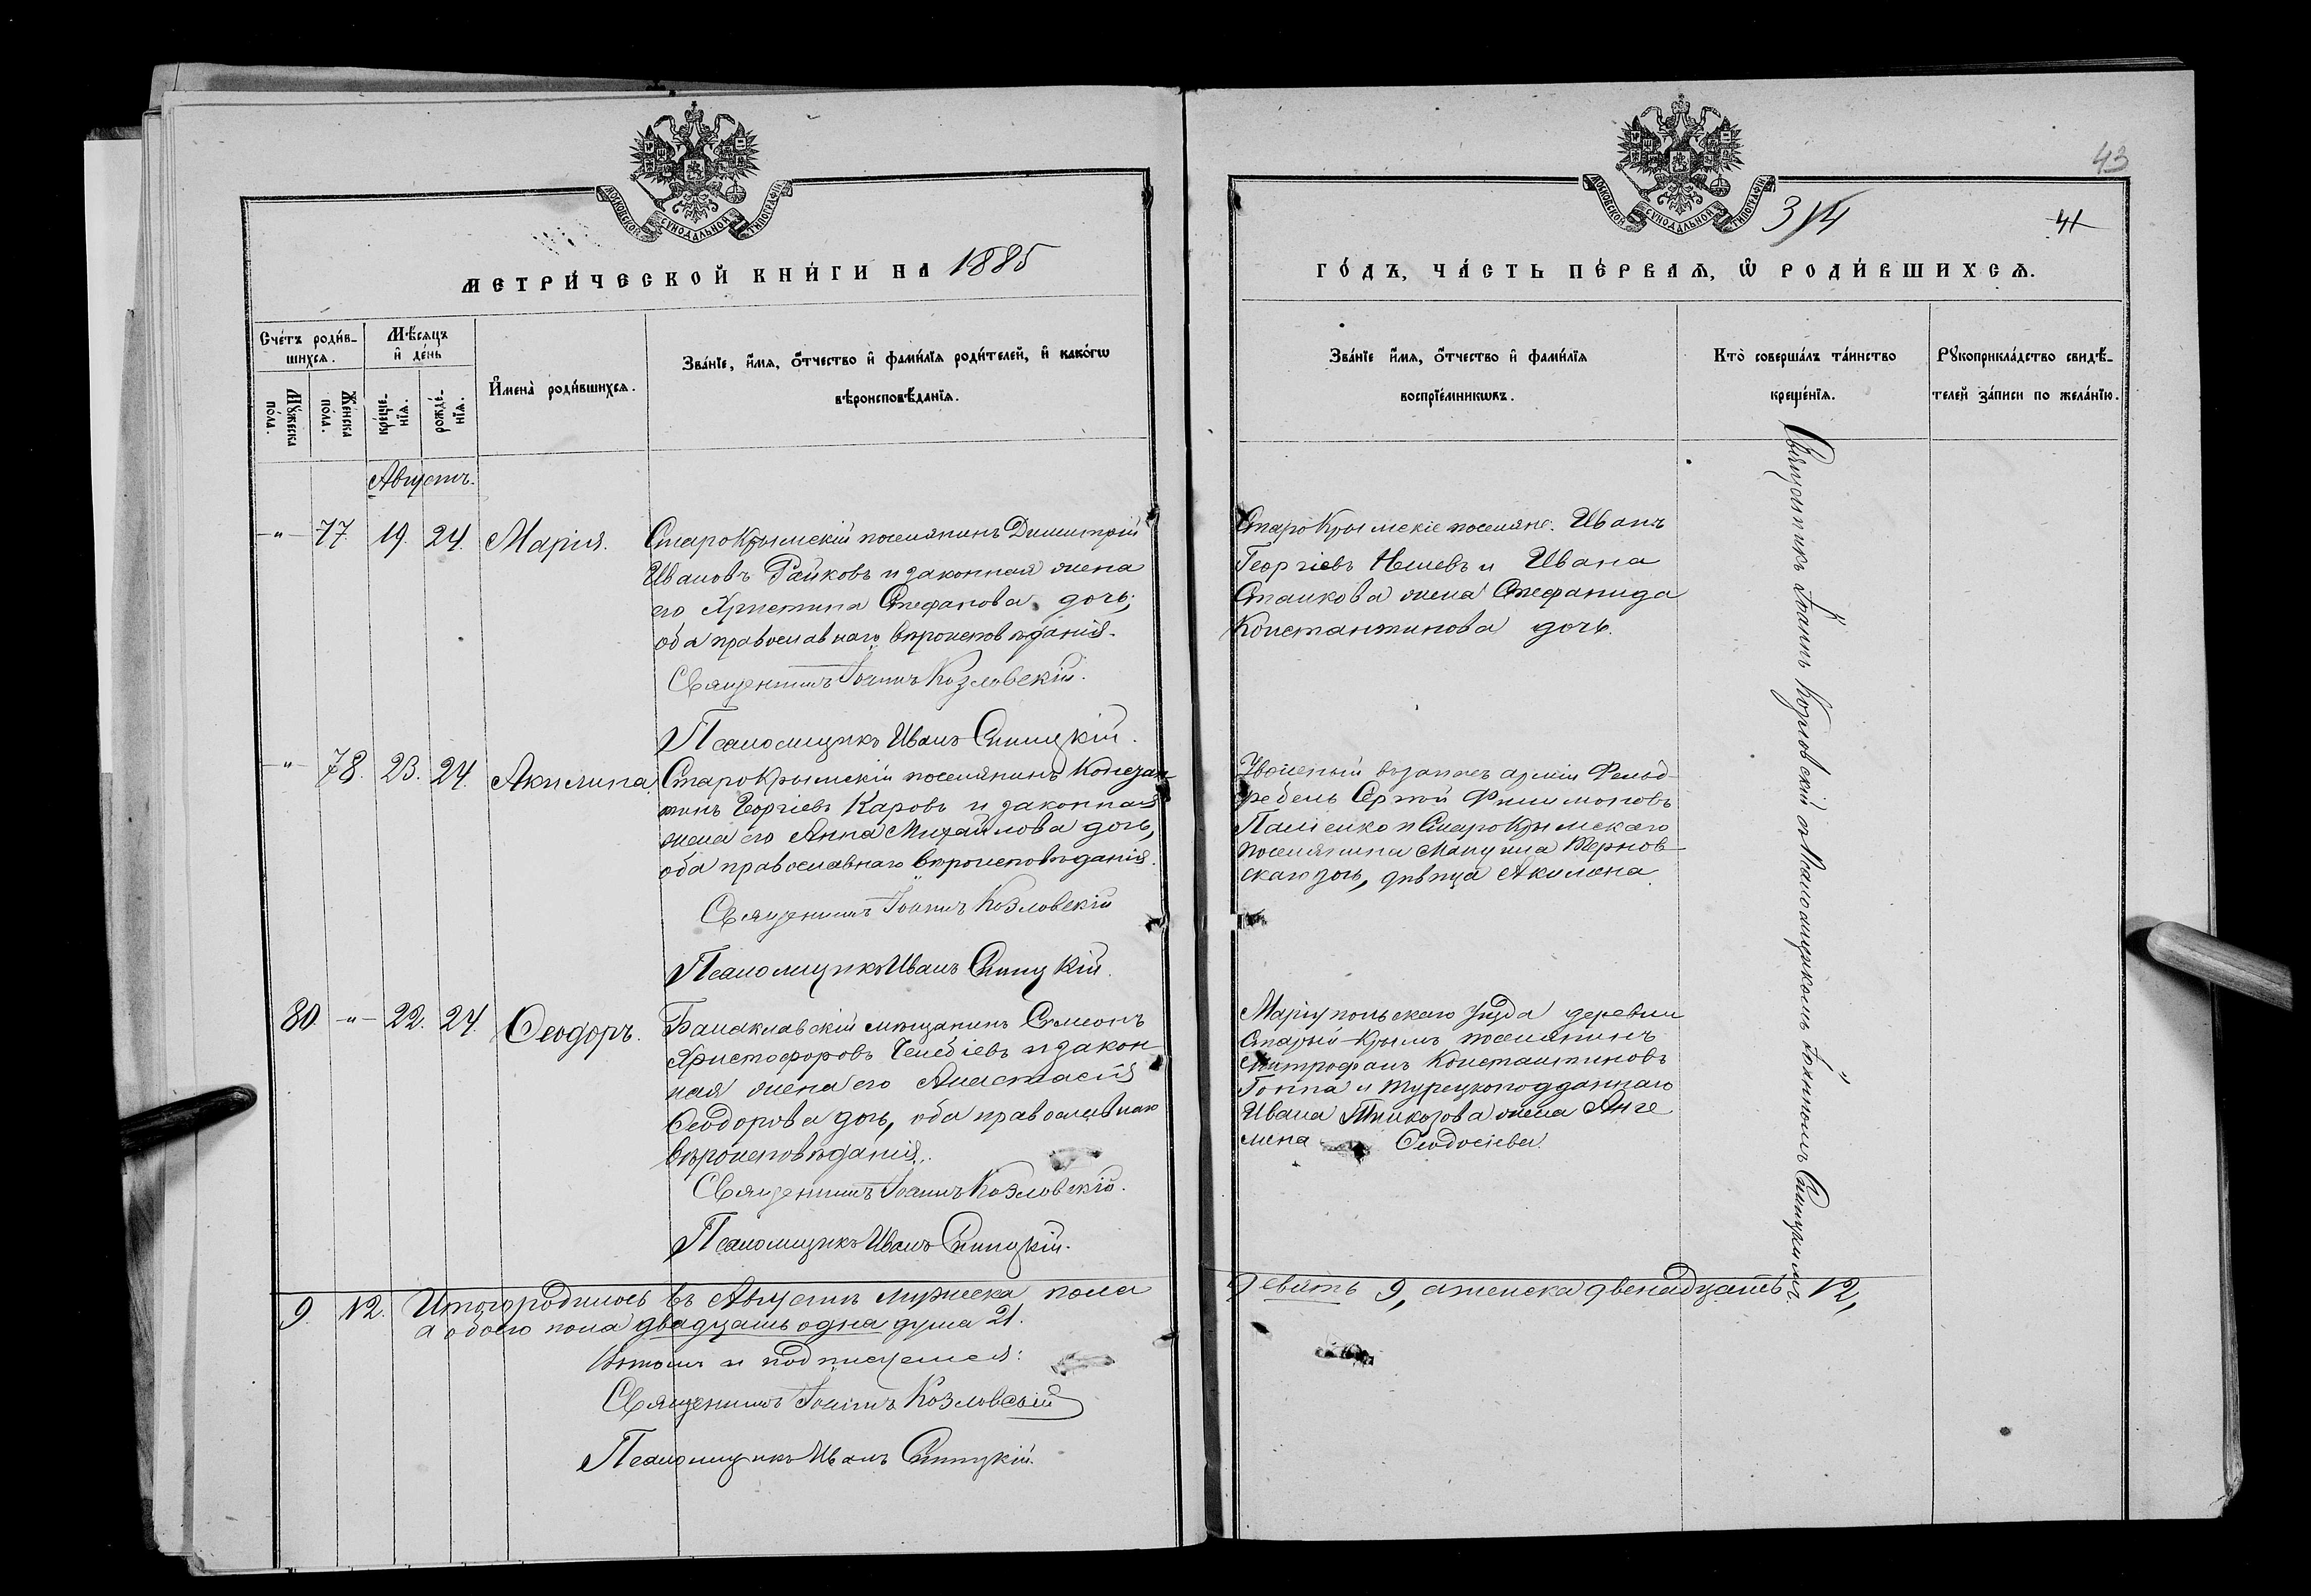 МОСКОВСКОЙ СѴНОДАЛЬНОЙ ТИПОГРАФІИ
МЕТРИ́ЧЕСКОЙ КНИ́ГИ НА 1885
Сче́тъ роди́в-
шихсѧ.
Мѣ́сѧцъ
и҆ де́нь
Мꙋ́жеска
по́ла.
Же́нска
по́ла.
креще́-
нїѧ.
рожде́-
нїѧ.
И҆мена̀ роди́вшихсѧ.
Зва́нїе, и҆́мѧ, ѻ҆́тчество и҆ фами́лїѧ роди́телей, и҆ како́гѡ
вѣроисповѣ́данїѧ.
Августъ.
-"- 77 19. 24. Марія. Старокрымскій поселянинъ Димитрій
Ивановъ Райковъ и законная жена
его Христина Стефанова дочь;
оба православнаго вѣроисповѣданія.
Священникъ Іоаннъ Козловскій.
Псаломщикъ Иванъ Синицкій.
-"- 78. 23. 24. Акилина Старокрымскій поселянинъ Констан-
тинъ Георгіевъ Каровъ и законная
жена его Анна Михайлова дочь,
оба православнаго вѣроисповѣданія.
Священникъ Іоаннъ Козловскій
Псаломщикъ Иванъ Синицкій.
80. -"- 22. 24. Ѳеодоръ. Балаклавскій мѣщанинъ Симеонъ
Христофоровъ Челебіевъ и закон-
ная жена его Анастасія
Ѳеодорова дочь, оба православнаго
вѣроисповѣданія.
Священникъ Іоаннъ Козловскій.
Псаломщикъ Иванъ Синицкій.
9. 12. Итого родилось въ Августѣ мужеска пола
а обоего пола двадцать одна душа 21.
Въ томъ и подписуемся:
Священникъ Іоаннъ Козловскій
Псаломщикъ Иванъ Синицкій.
43
МОСКОВСКОЙ СѴНОДАЛЬНОЙ ТИПОГРАФІИ
314
41
ГО́ДЪ, ЧА́СТЬ ПЕ́РВАѦ, Ѡ҆ РОДИ́ВШИХСѦ.
Зва́нїе и҆́мѧ, ѻ҆́тчество и҆ фами́лїѧ
воспрїе́мникѡвъ.
Кто̀ соверша́лъ та́инство
креще́нїѧ.
Рꙋкоприкла́дство свидѣ́-
телей за́писи по жела́нїю.
Старокрымскіе поселяне: Иванъ
Георгіевъ Нешевъ и Ивана
Станкова жена Стефанида
Константинова дочь.
Уволеный въ запасъ арміи Фельд-
фебель Сергѣй Филимоновъ
Пащенко и Старокрымскаго
поселянина Мануила Тернов-
скаго дочь, дѣвица Акилина.
Маріупольскаго уѣзда деревни
Старый-Крымъ поселянинъ
Митрофанъ Константиновъ
Гоппа и турецкоподданнаго
Ивана жена Анге
лина Ѳеодосіева
Священникъ Іоаннъ Козловскій съ Псаломщикомъ Іоанномъ Синицкимъ.
девять 9, а женска двенадцать 12,